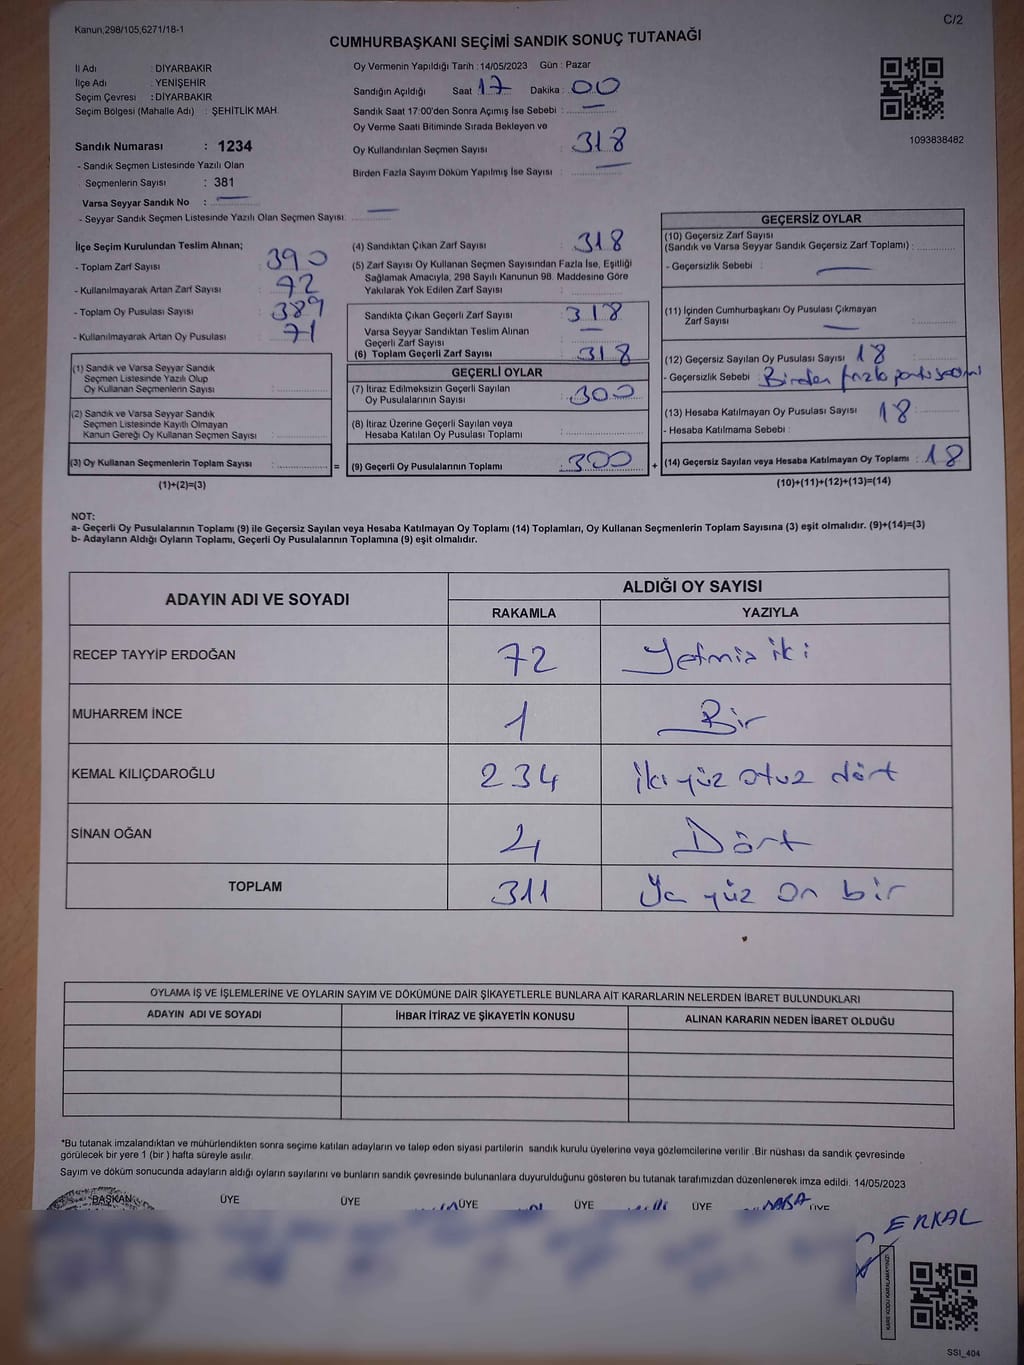 Kanun,298/105,6271/18-1
C/2
CUMHURBAŞKANI SEÇİMİ SANDIK SONUÇ TUTANAĞI
İl Adı : DİYARBAKIR
İlçe Adı : YENİŞEHİR
Seçim Çevresi : DİYARBAKIR
Seçim Bölgesi (Mahalle Adı) : ŞEHİTLİK MAH.
Sandık Numarası : 1234
- Sandık Seçmen Listesinde Yazılı Olan
Seçmenlerin Sayısı : 381
Varsa Seyyar Sandık No : —
- Seyyar Sandık Seçmen Listesinde Yazılı Olan Seçmen Sayısı: —
Oy Vermenin Yapıldığı Tarih :14/05/2023 Gün : Pazar
Sandığın Açıldığı Saat 17 Dakika : 00
Sandık Saat 17:00'den Sonra Açımış İse Sebebi : —
Oy Verme Saati Bitiminde Sırada Bekleyen ve
Oy Kullandırılan Seçmen Sayısı : 318
Birden Fazla Sayım Döküm Yapılmış İse Sayısı : —
1093838482
İlçe Seçim Kurulundan Teslim Alınan;
- Toplam Zarf Sayısı : 390
- Kullanılmayarak Artan Zarf Sayısı : 72
- Toplam Oy Pusulası Sayısı : 389
- Kullanılmayarak Artan Oy Pusulası : 71
(1) Sandık ve Varsa Seyyar Sandık
Seçmen Listesinde Yazılı Olup
Oy Kullanan Seçmenlerin Sayısı :
(2) Sandık ve Varsa Seyyar Sandık
Seçmen Listesinde Kayıtlı Olmayan
Kanun Gereği Oy Kullanan Seçmen Sayısı :
(3) Oy Kullanan Seçmenlerin Toplam Sayısı :
(1)+(2)=(3)
=
(4) Sandıktan Çıkan Zarf Sayısı : 318
(5) Zarf Sayısı Oy Kullanan Seçmen Sayısından Fazla İse, Eşitliği
Sağlamak Amacıyla, 298 Sayılı Kanunun 98. Maddesine Göre
Yakılarak Yok Edilen Zarf Sayısı :
Sandıkta Çıkan Geçerli Zarf Sayısı : 318
Varsa Seyyar Sandıktan Teslim Alınan
Geçerli Zarf Sayısı : —
(6) Toplam Geçerli Zarf Sayısı : 318
GEÇERLİ OYLAR
(7) İtiraz Edilmeksizin Geçerli Sayılan
Oy Pusulalarının Sayısı : 300
(8) İtiraz Üzerine Geçerli Sayılan veya
Hesaba Katılan Oy Pusulası Toplamı :
(9) Geçerli Oy Pusulalarının Toplamı : 300
+
GEÇERSİZ OYLAR
(10) Geçersiz Zarf Sayısı
(Sandık ve Varsa Seyyar Sandık Geçersiz Zarf Toplamı) :
- Geçersizlik Sebebi : —
(11) İçinden Cumhurbaşkanı Oy Pusulası Çıkmayan
Zarf Sayısı : —
(12) Geçersiz Sayılan Oy Pusulası Sayısı : 18
- Geçersizlik Sebebi : Birden fazla
(13) Hesaba Katılmayan Oy Pusulası Sayısı : 18
- Hesaba Katılmama Sebebi :
(14) Geçersiz Sayılan veya Hesaba Katılmayan Oy Toplamı : 18
(10)+(11)+(12)+(13)=(14)
NOT:
a- Geçerli Oy Pusulalarının Toplamı (9) ile Geçersiz Sayılan veya Hesaba Katılmayan Oy Toplamı (14) Toplamları, Oy Kullanan Seçmenlerin Toplam Sayısına (3) eşit olmalıdır. (9)+(14)=(3)
b- Adayların Aldığı Oyların Toplamı, Geçerli Oy Pusulalarının Toplamına (9) eşit olmalıdır.
ADAYIN ADI VE SOYADI
ALDIĞI OY SAYISI
RAKAMLA YAZIYLA
RECEP TAYYİP ERDOĞAN 72 Yetmiş iki
MUHARREM İNCE 1 Bir
KEMAL KILIÇDAROĞLU 234 iki yüz otuz dört
SİNAN OĞAN 4 Dört
TOPLAM 311 yüz on bir
OYLAMA İŞ VE İŞLEMLERİNE VE OYLARIN SAYIM VE DÖKÜMÜNE DAİR ŞİKAYETLERLE BUNLARA AİT KARARLARIN NELERDEN İBARET BULUNDUKLARI
ADAYIN ADI VE SOYADI İHBAR İTİRAZ VE ŞİKAYETİN KONUSU ALINAN KARARIN NEDEN İBARET OLDUĞU
*Bu tutanak imzalandıktan ve mühürlendikten sonra seçime katılan adayların ve talep eden siyasi partilerin sandık kurulu üyelerine veya gözlemcilerine verilir .Bir nüshası da sandık çevresinde
görülecek bir yere 1 (bir ) hafta süreyle asılır.
Sayım ve döküm sonucunda adayların aldığı oyların sayılarını ve bunların sandık çevresinde bulunanlara duyurulduğunu gösteren bu tutanak tarafımızdan düzenlenerek imza edildi. 14/05/2023
BAŞKAN ÜYE ÜYE ÜYE ÜYE ÜYE ÜYE
ERKAL
KARE KODU KARALAMAYINIZ!
SSİ_404